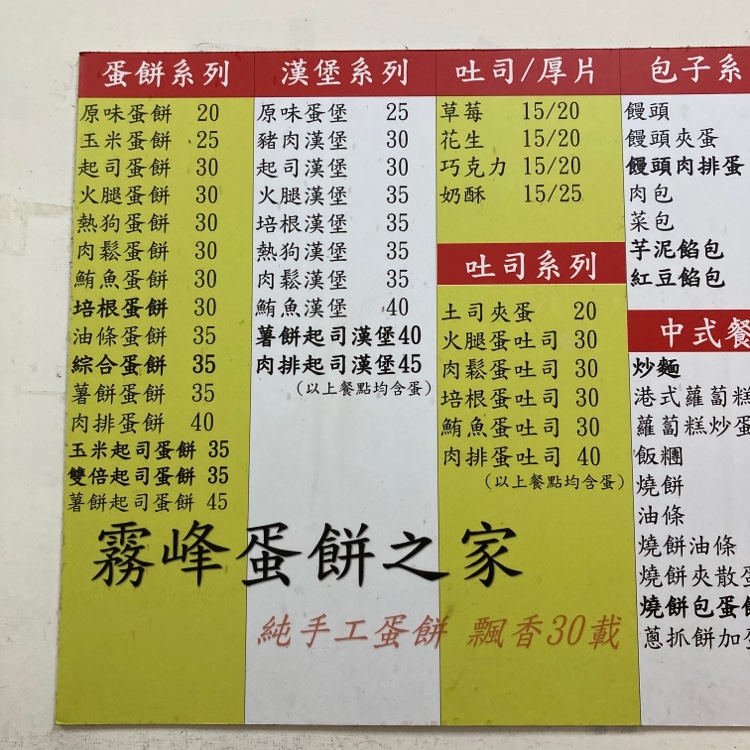 蛋餅系列
原味蛋餅 20
玉米蛋餅 25
起司蛋餅 30
火腿蛋餅 30
熱狗蛋餅 30
肉鬆蛋餅 30
鮪魚蛋餅 30
培根蛋餅 30
油條蛋餅 35
綜合蛋餅 35
薯餅蛋餅 35
肉排蛋餅 40
玉米起司蛋餅 35
雙倍起司蛋餅 35
薯餅起司蛋餅 45
漢堡系列
原味蛋堡 25
豬肉漢堡 30
起司漢堡 30
火腿漢堡 35
培根漢堡 35
熱狗漢堡 35
肉鬆漢堡 35
鮪魚漢堡 40
薯餅起司漢堡40
肉排起司漢堡45
(以上餐點均含蛋)
吐司/厚片
草莓 15/20
花生 15/20
巧克力 15/20
奶酥 15/25
吐司系列
土司夾蛋 20
火腿蛋吐司 30
肉鬆蛋吐司 30
培根蛋吐司 30
鮪魚蛋吐司 30
肉排蛋吐司 40
(以上餐點均含蛋)
包子系
饅頭
饅頭夾蛋
饅頭肉排蛋
肉包
菜包
芋泥餡包
紅豆餡包
中式餐
炒麵
港式蘿蔔糕
蘿蔔糕炒蛋
飯糰
燒餅
油條
燒餅油條
燒餅夾散蛋
燒餅包蛋餅
蔥抓餅加蛋
霧峰蛋餅之家
純手工蛋餅 飄香30載